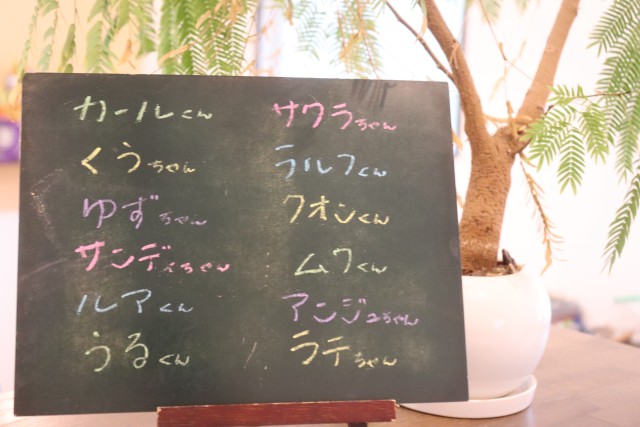 カールくん
くうちゃん
ゆずちゃん
サンディちゃん
ルアくん
うるくん
サクラちゃん
ラルフくん
クオンくん
ムクくん
アンジュちゃん
ラテちゃん